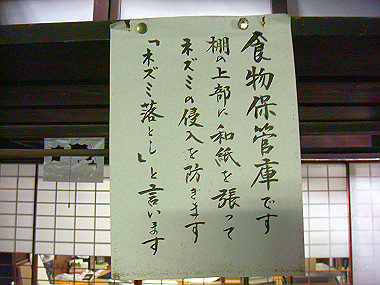 食物保管庫です
棚の上部に和紙を張って
ネズミの侵入を防ぎます
「ネズミ落とし」と言います